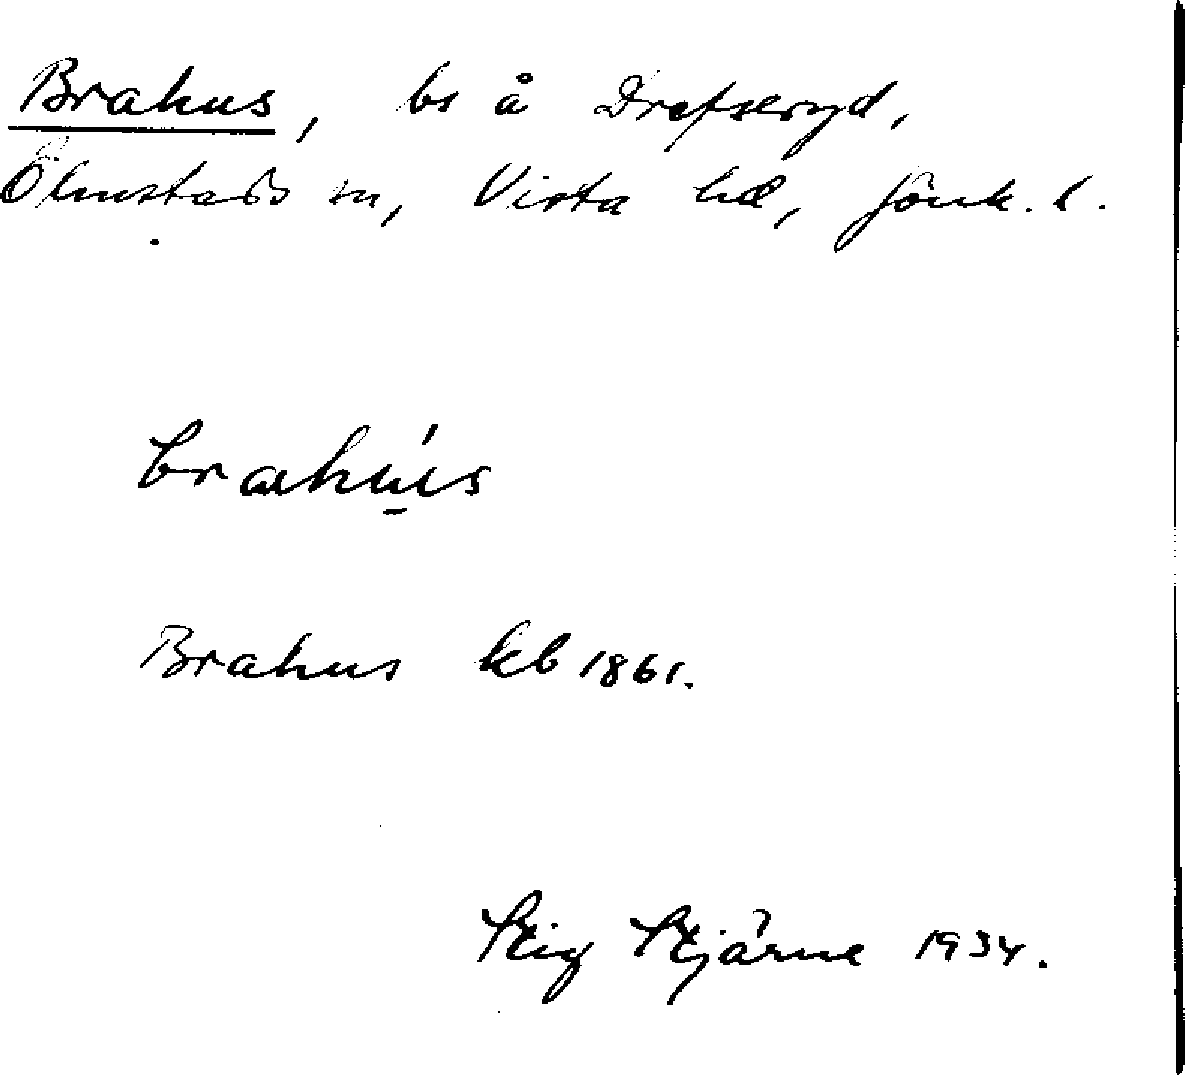 Brahus, bs å Drefseryd,
Ölmstads sn, Vista hd, Jönk. l.
brahús
Brahus kb 1861.
Stig Stjärne 1934.